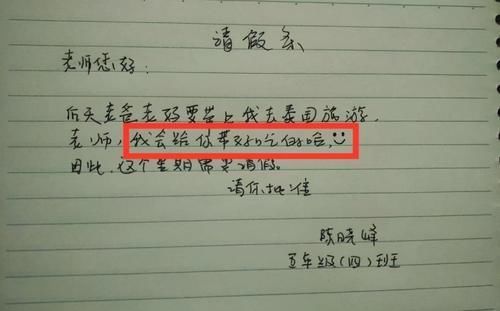 请假条
老师您好:
后天老爸老妈要带上我去泰国旅游,
老师,我会给你带好吃的哈,
因此,这个星期需要请假。
请你批准
陈晓峰
五年级(四)班